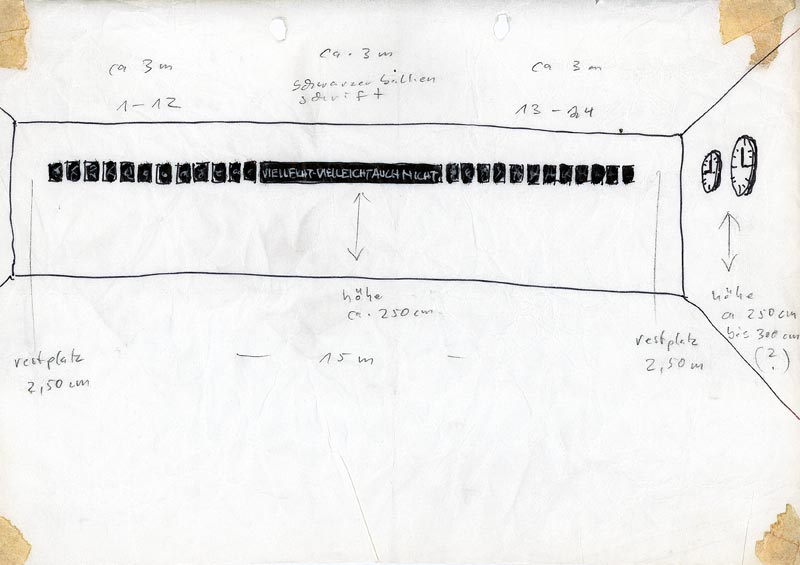 ca 3 m
ca. 3 m
ca 3 m
schwarzer balken
schrift
1-12
13-24
VIELLEICHT-VIELLEICHT AUCH NICHT
höhe
ca. 250 cm
höhe
ca 250 cm
bis 300 cm
(?)
restplatz
2,50 cm
— 15 m —
restplatz
2,50 m